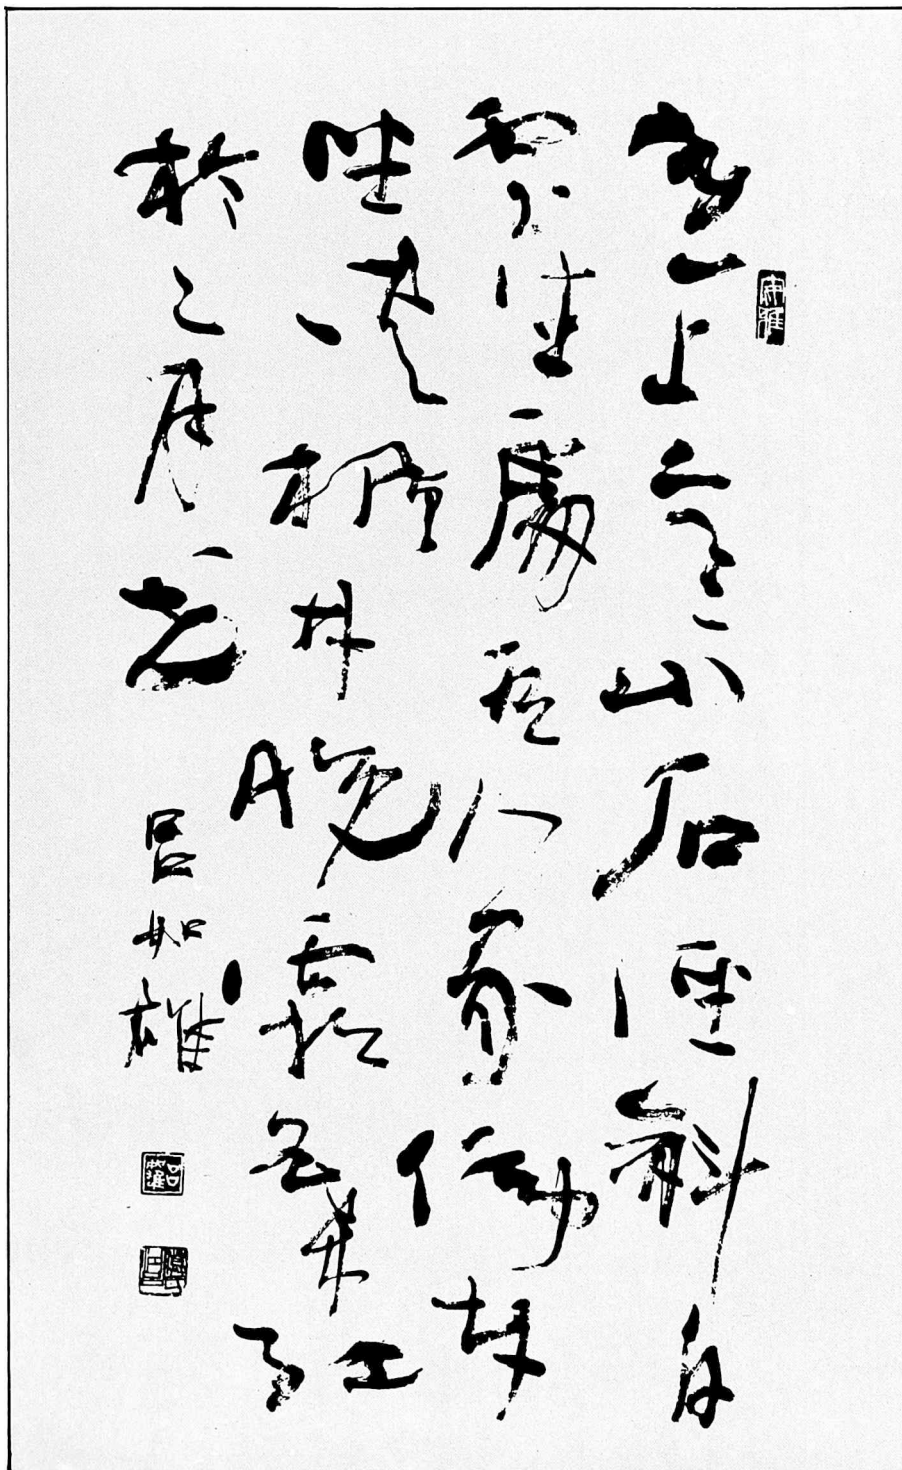 遠上寒山石徑斜白
雲生處有人家停車
坐愛楓林晚霜葉紅
於二月花 呂如雄